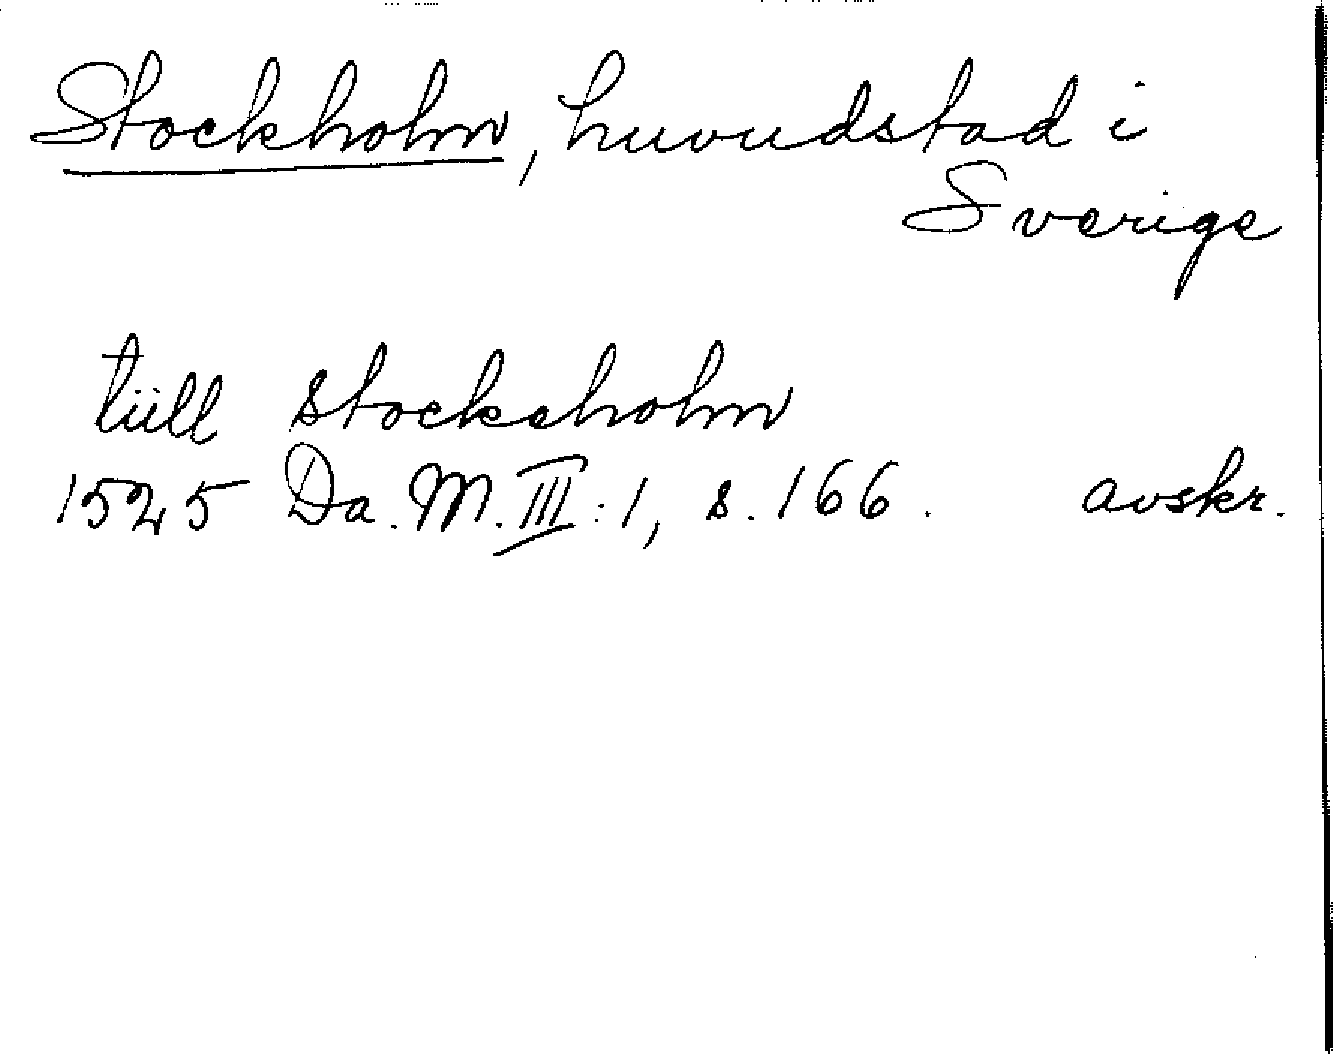 Stockholm, huvudstad i
Sverige
tiill stockeholm
1525 Da. M. III:1, s. 166. avskr.